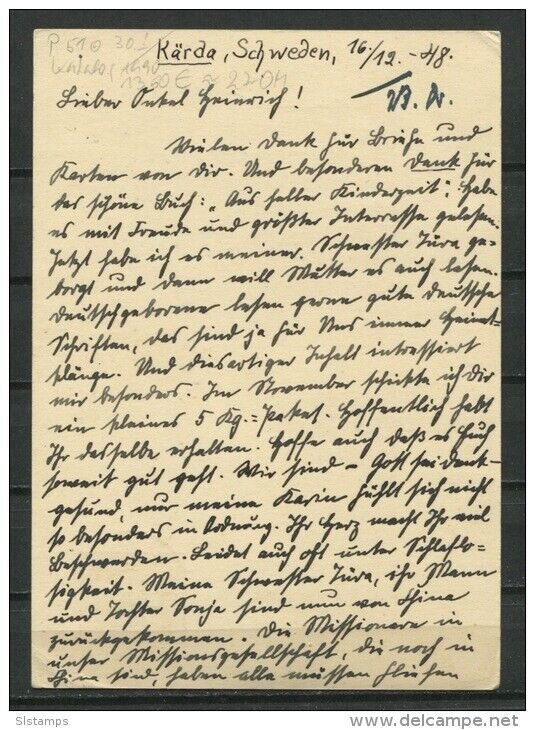 Kärda, Schweden, 16/12.-48.
Lieber Onkel Heinrich!
Vielen Dank für Briefe und
Karten von dir. Und besonderen Dank für
das schöne Buch: „Aus seliger Kinderzeit". Habe
es mit Freude und größter Interresse gelesen.
Jetzt habe ich es meiner Schwester Tura ge-
borgt und dann will Mutter es auch lesen.
Deutschgeborene lesen gerne gute deutsche
Schriften, das sind ja für Uns immer Heimat-
klänge. Und diesartiger Inhalt intressiert
mir besonders. Im November schickte ich dir
ein kleines 5 Kg.=Paket. Hoffentlich habt
Ihr dasselbe erhalten. Hoffe auch daß es Euch
soweit gut geht. Wir sind - Gott sei dank -
gesund, nur meine Karin fühlt sich nicht
so besonders in Ordnung. Ihr Herz macht Ihr viel
Beschwerden. Leidet auch oft unter Schlaflo-
sigkeit. Meine Schwester Tura, ihr Mann
und Tochter Sonja sind nun von China
zurückgekommen. Die Missionare in
unser Missionsgesellschaft, die noch in
China sind, haben alle müssen fliehen
SIstamps
www.delcampe.net